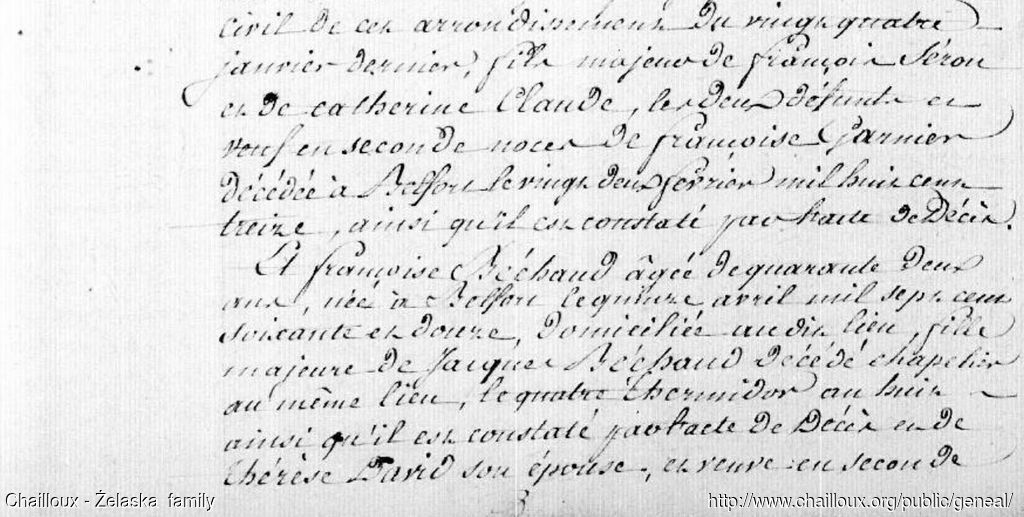 civil de cet arrondissement du vingt quatre
janvier dernier, fils majeur de françois Séron
et de catherine Claude, les deux défunts et
veuf en seconde noces de françoise Garnier
décédée à Belfort le vingt deux fevrier mil huit cent
treize, ainsi qu'il est constaté par l'acte de Décès.
Et françoise Béchaud âgée de quarante deux
ans, née à Belfort le quinze avril mil sept cent
soixante et douze, domiciliée au dit lieu, fille
majeure de Jacques Béchaud décédé chapelier
au même lieu, le quatre thermidor an huit
ainsi qu'il est constaté par l'acte de Décès et de
thérèse David son épouse, et veuve en seconde
Chailloux - Želaska family
http://www.chailloux.org/public/geneal/